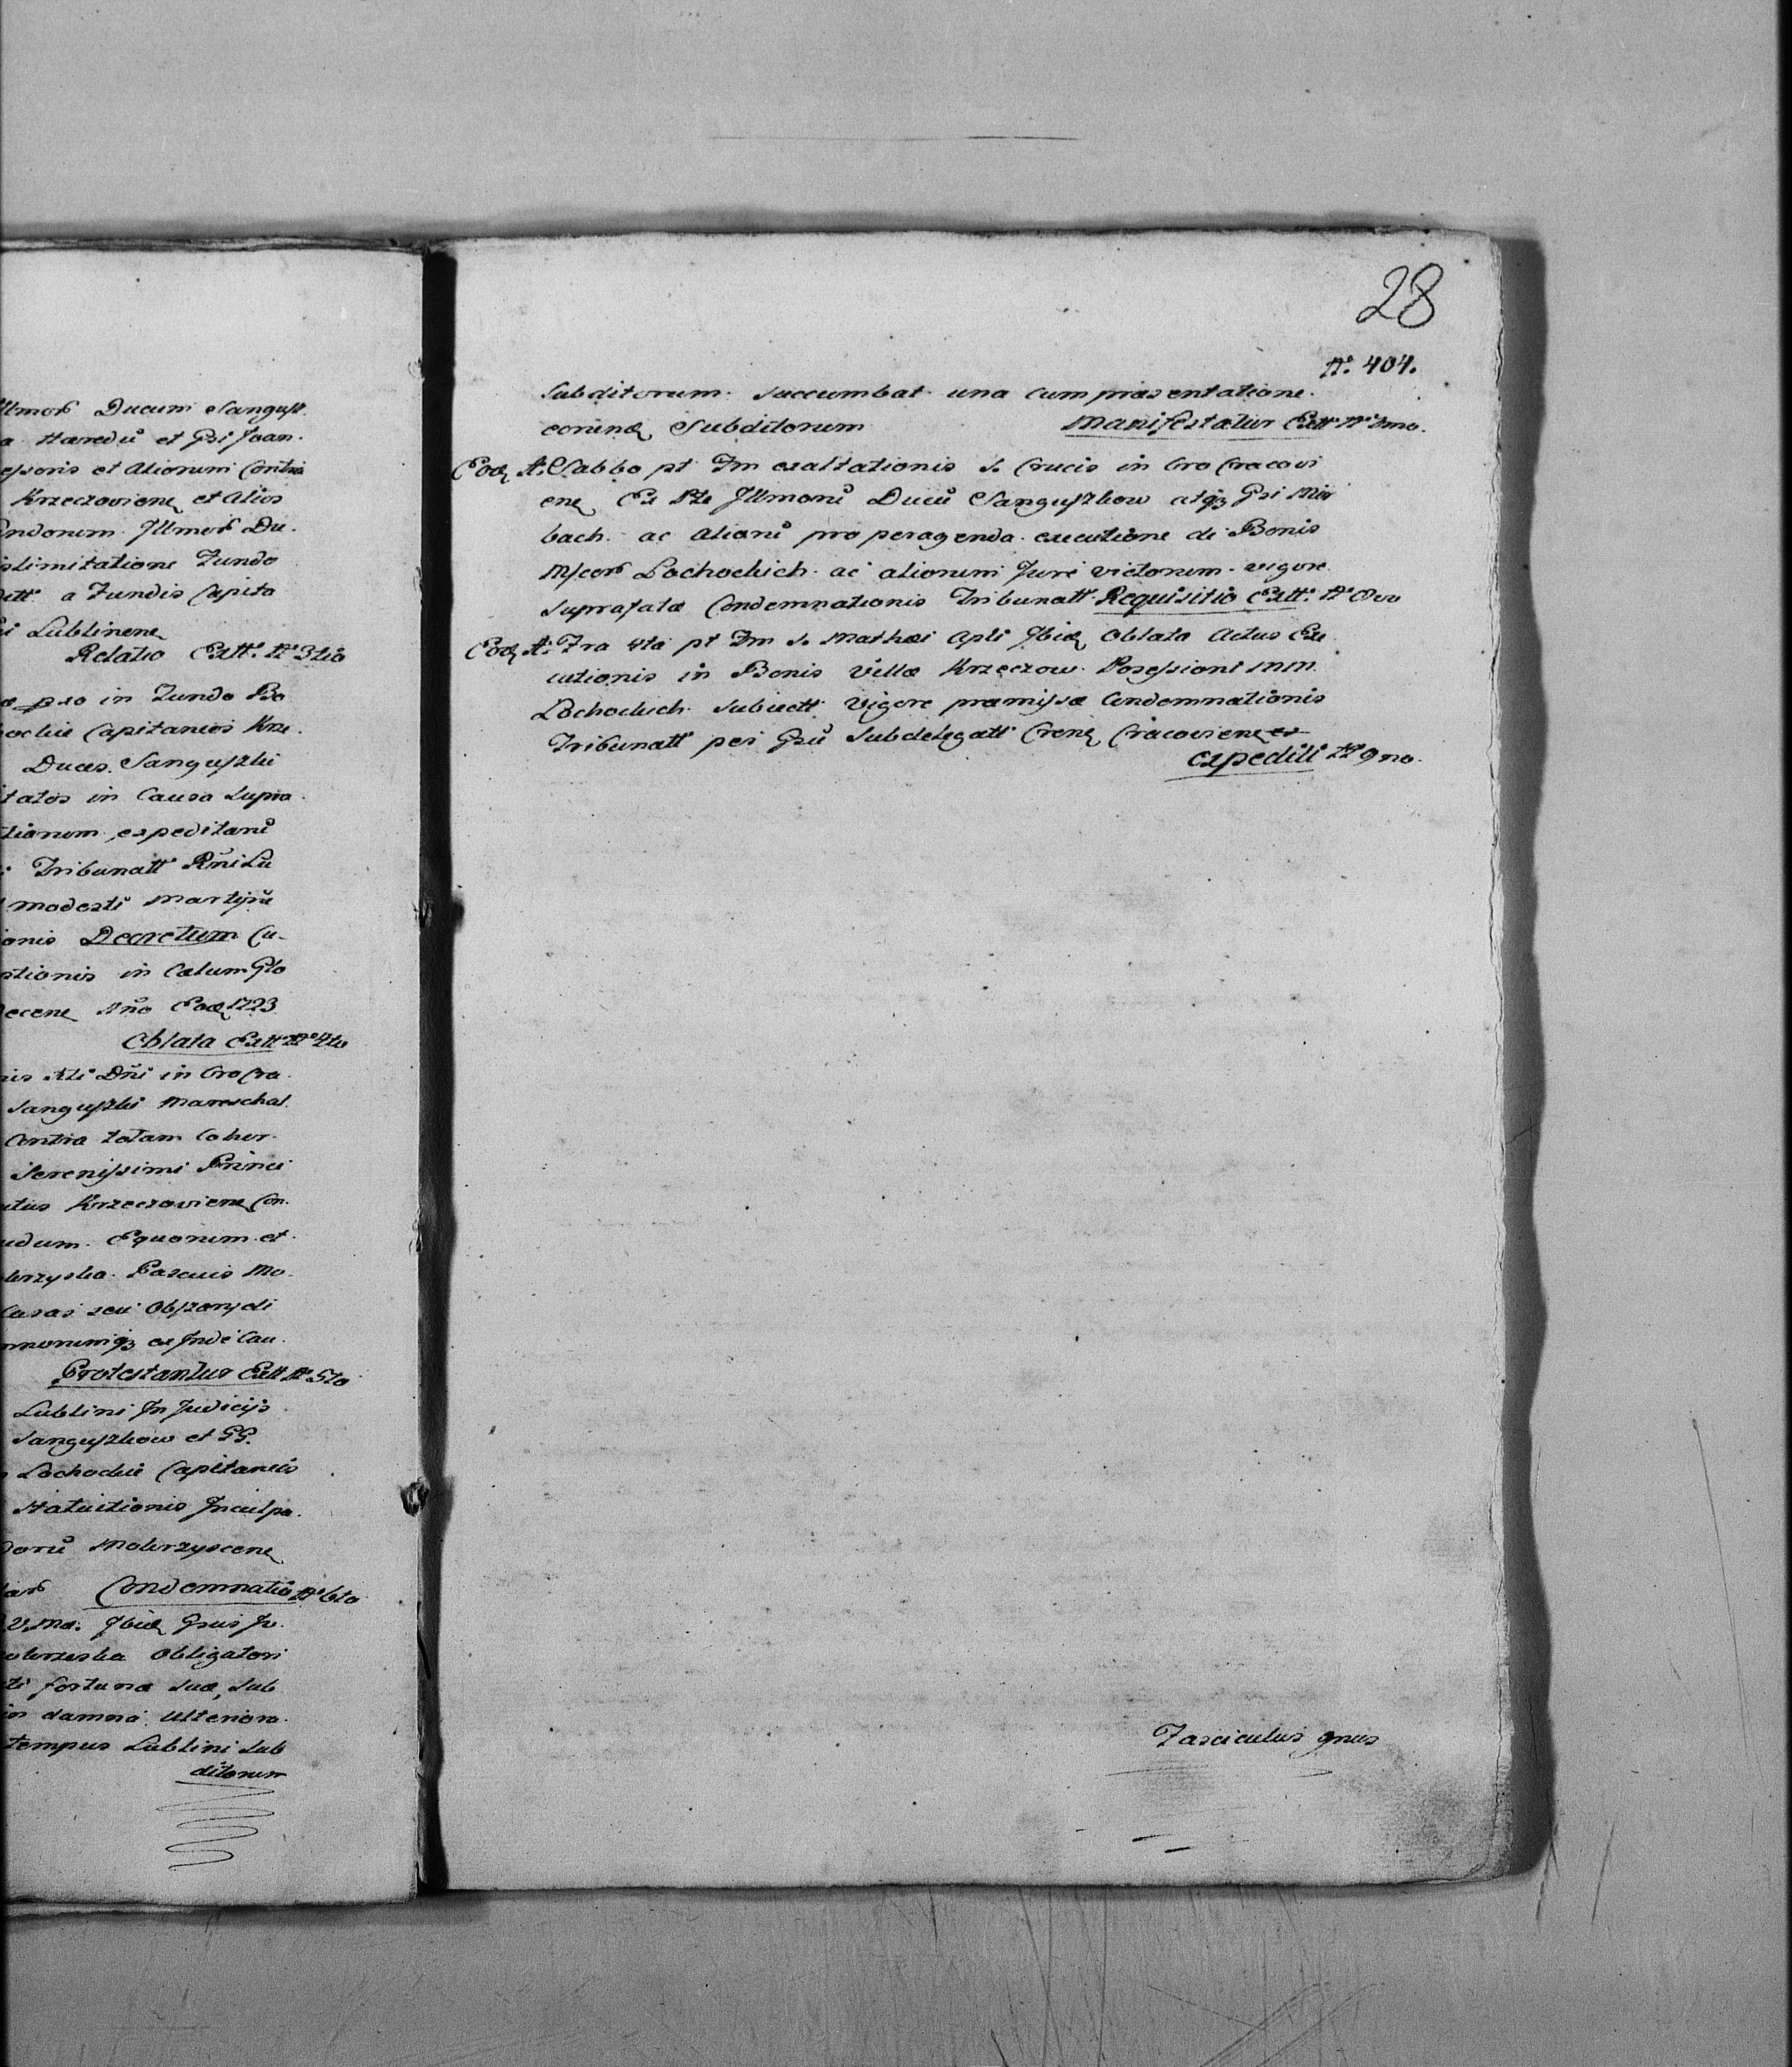 Illmor Ducum Sangusz.
a Haeredu et Gsi Joan.
essoris et Aliorum Contra
Krzeczoviene et Alios
Illmor Du.
limitatione Fundo
a Fundis Capita
Lublinene
Relatio Extt: N° 3tio
in Fundo Bo
Capitaneos Krze.
Duces. Sanguszki
tatos in Causa Supra.
tionum expeditaru
Tribunatt Rni Lu
Modesti Martyris
ionis Decretum Cu-
stionis in Calum Gło
ecene Año Eod 1723
Oblata Extt N° 4to
nis Xti Dñi in Cro Cra.
Sanguszki Mareschal.
Contra totam Coher.
Serenissimi Princi
Krzeczoviene Con.
udum. Equorum et.
Pascuis Mo.
Casas seu Obszary di
ex Inde Cau.
Protestantur Extt N° 5to
Lublini In Judicijs
Sanguszkow et GG.
Lochockie Capitaneis
Statuitionis Inculpa.
Moderzyscene
Condemnatio N° 6to
Ibid Gsus Jo.
Obligatori
fortuna sua, Sub
in damna ulteriora.
tempus Lublini Sub
ditorum
28
N°. 404.
Subditorum. Succumbat una cum praesentatione.
eorund Subditorum Manifestatur Extt N° 7mo.
Eod A. Sabbo pt Fm exaltationis S. Crucis in Cro Cracovi
ene Ex Pte Illmoru Ducu Sanguszkow atq Gsi Mir
bach. ac Alioru pro peragenda executione de Bonis
Mfcor Lochockich. ac aliorum Jure victorum. vigore
Suprafata Condemnationis Tribunatt Requisitio Extt: N° 8vo
Eod A. Fra 4ta pt Fm S. Mathaei Apli Ibid Oblata Actus Exe
cutionis in Bonis Villae Krzęczow. Possessioni MM.
Lochockich. Subiectt Vigore praemissae Condemnationis
Tribunatt per Gsu Subdelegatt Crene Cracoviene
expediti N° 9no.
Fasciculus 9nus